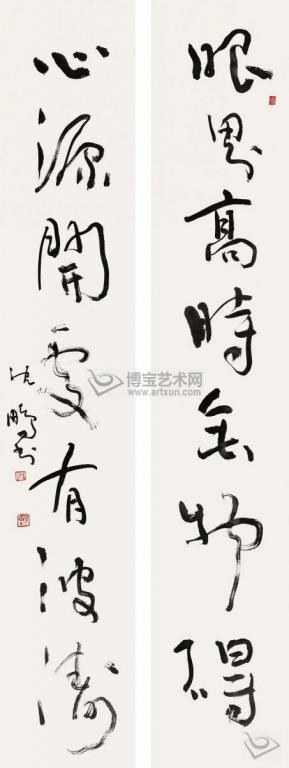 眼界高時無物碍
心源開處有波濤
沈鵬書
博宝艺术网
www.artxun.com